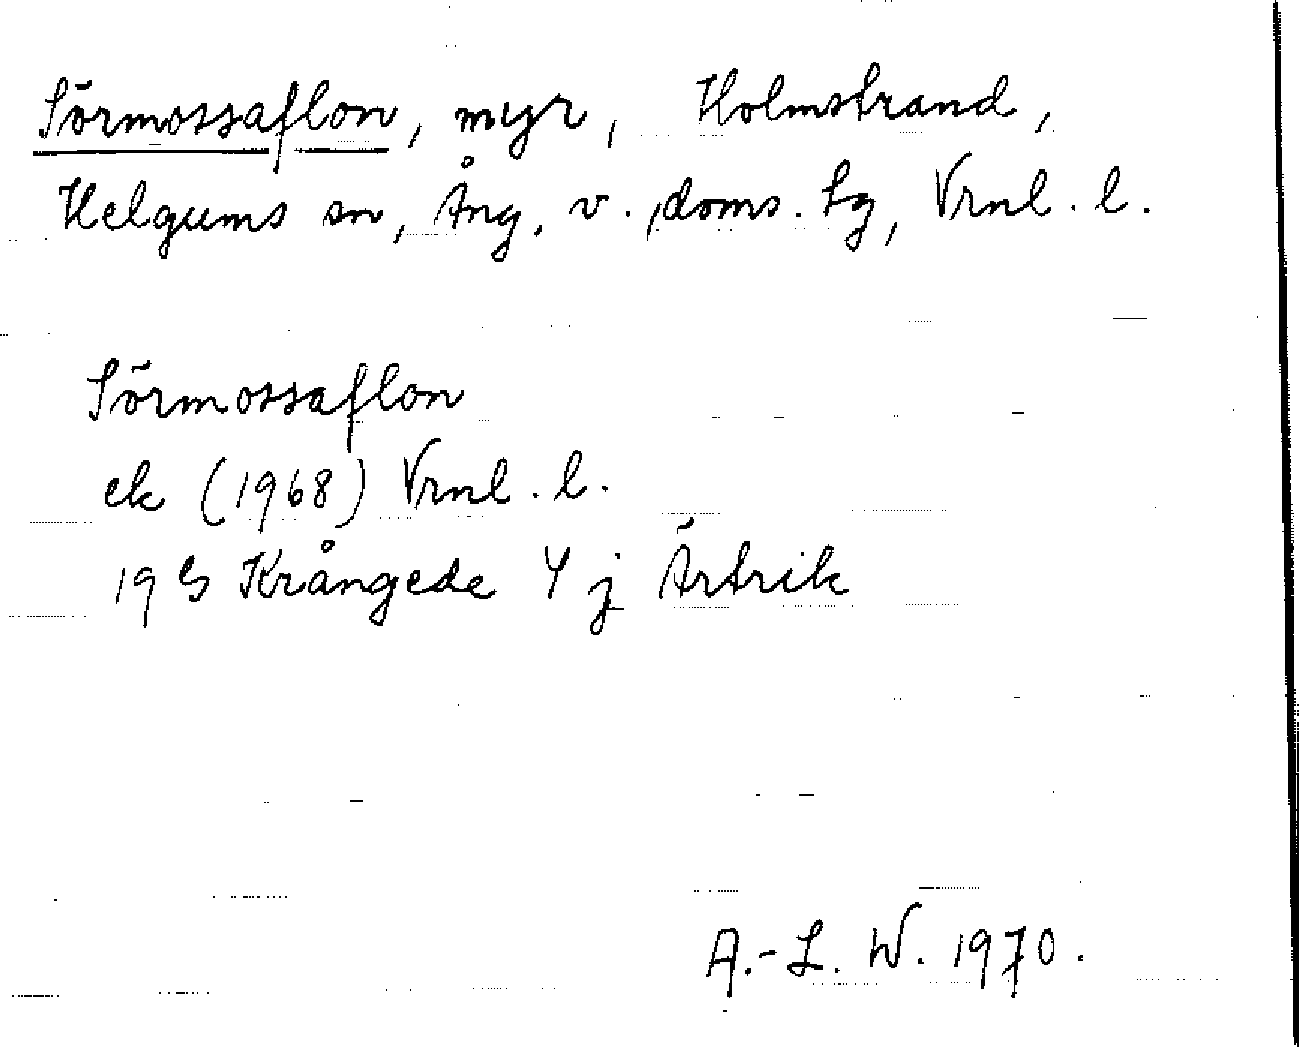 Sörmossaflon, myr, Holmstrand,
Helgums sn, Ång. v., doms. hg, Vrnl. l.
Sörmossaflon
ek (1968) Vrnl. l.
19 Krångede Y j Ärtrik
A.-L. W. 1970.